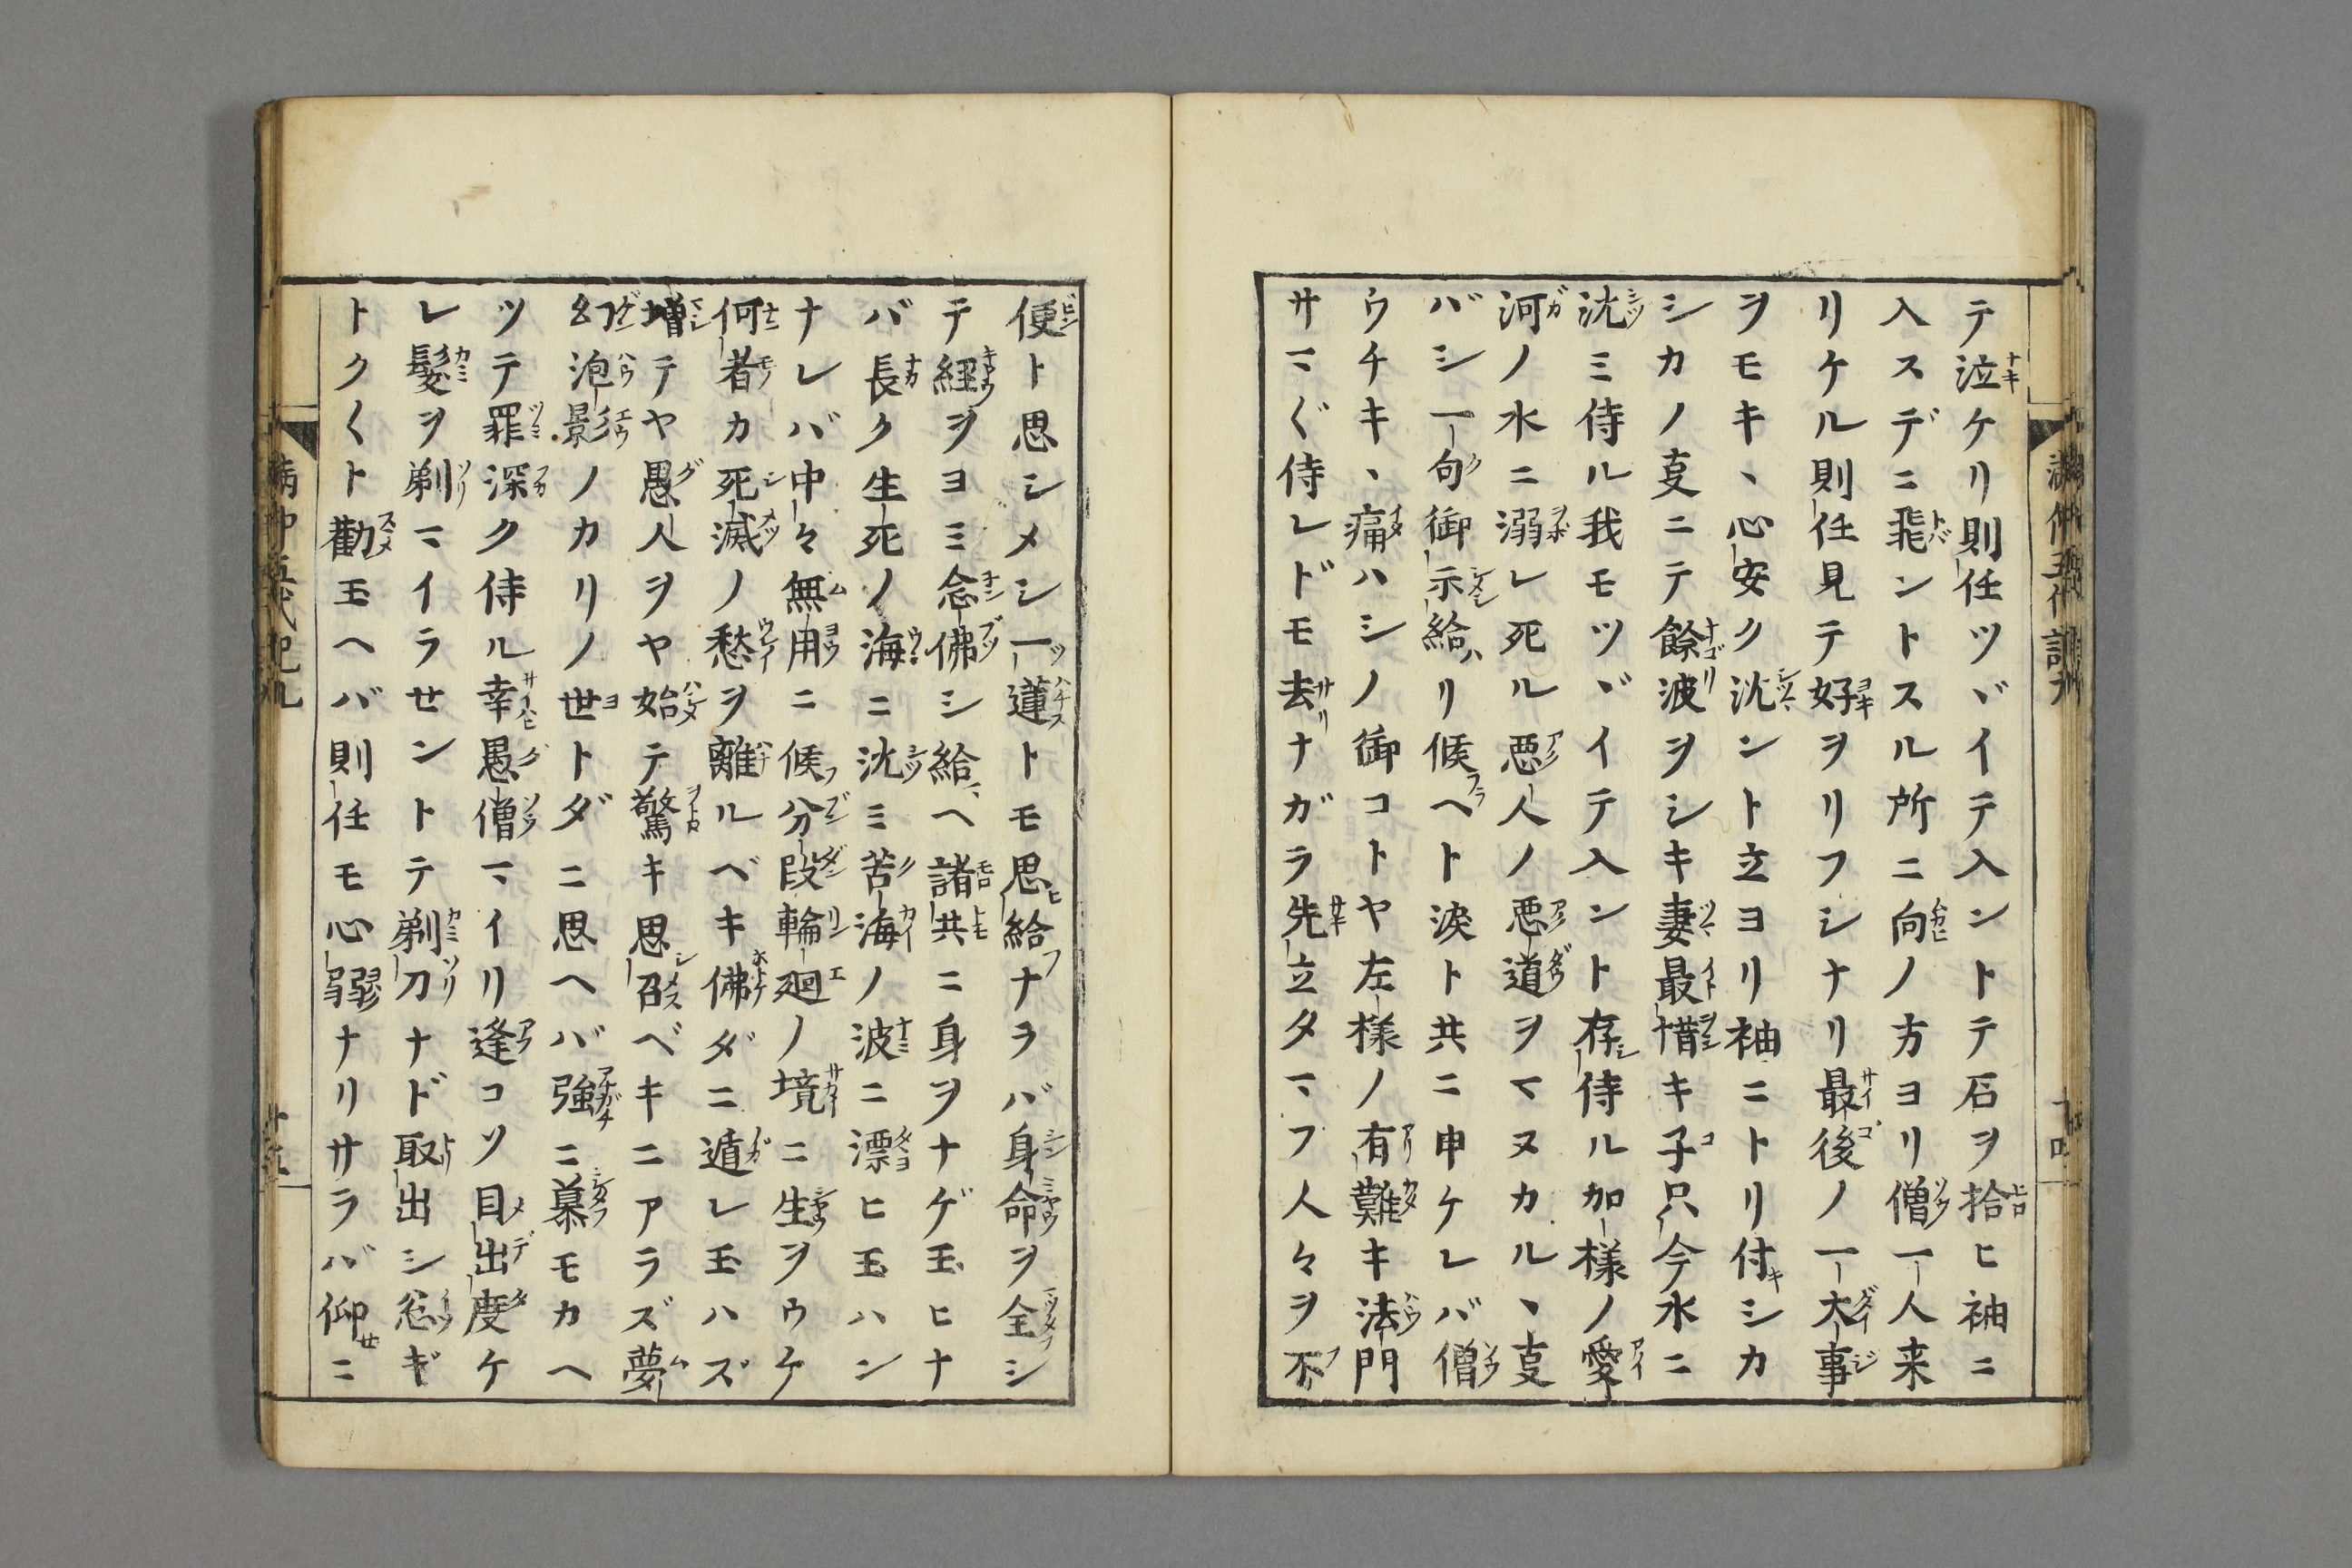 テ泣ケリ則任ツヾイテ入ントテ石ヲ拾ヒ袖ニ
入スデニ飛ントスル所ニ向ノ方ヨリ僧一人来
リケル則任見テ好ヲリフシナリ最後ノ一大事
ヲモキヽ心安ク沈ント立ヨリ袖ニトリ付シカ
シカノ㕝ニテ餘波ヲシキ妻最惜キ子只今水ニ
沈ミ侍ル我モツヾイテ入ント存侍ル加様ノ愛
河ノ水ニ溺レ死ル悪人ノ悪道ヲマヌカルヽ㕝
バシ一句御示給リ候ヘト涙ト共ニ申ケレバ僧
ウチキヽ痛ハシノ御コトヤ左様ノ有難キ法門
サマ〴〵侍レドモ去ナガラ先立タマフ人々ヲ不
便ト思シメシ一蓮トモ思給ナラバ身命ヲ全シ
テ経ヲヨミ念佛シ給ヘ諸共ニ身ヲナゲ玉ヒナ
バ長ク生死ノ海ニ沈ミ苦海ノ波ニ漂ヒ玉ハン
ナレバ中々無用ニ候分段輪廻ノ境ニ生ヲウケ
何者カ死滅ノ愁ヲ離ルベキ佛ダニ遁レ玉ハズ
増テヤ愚人ヲヤ始テ驚キ思召ベキニアラズ夢
幻泡影ノカリノ世トダニ思ヘバ強ニ慕モカヘ
ツテ罪深ク侍ル幸愚僧マイリ逢コソ目出度ケ
レ髪ヲ剃マイラセントテ剃刀ナド取出シ忩ギ
トク〱ト勸玉ヘバ則任モ心弱ナリサラバ仰ニ